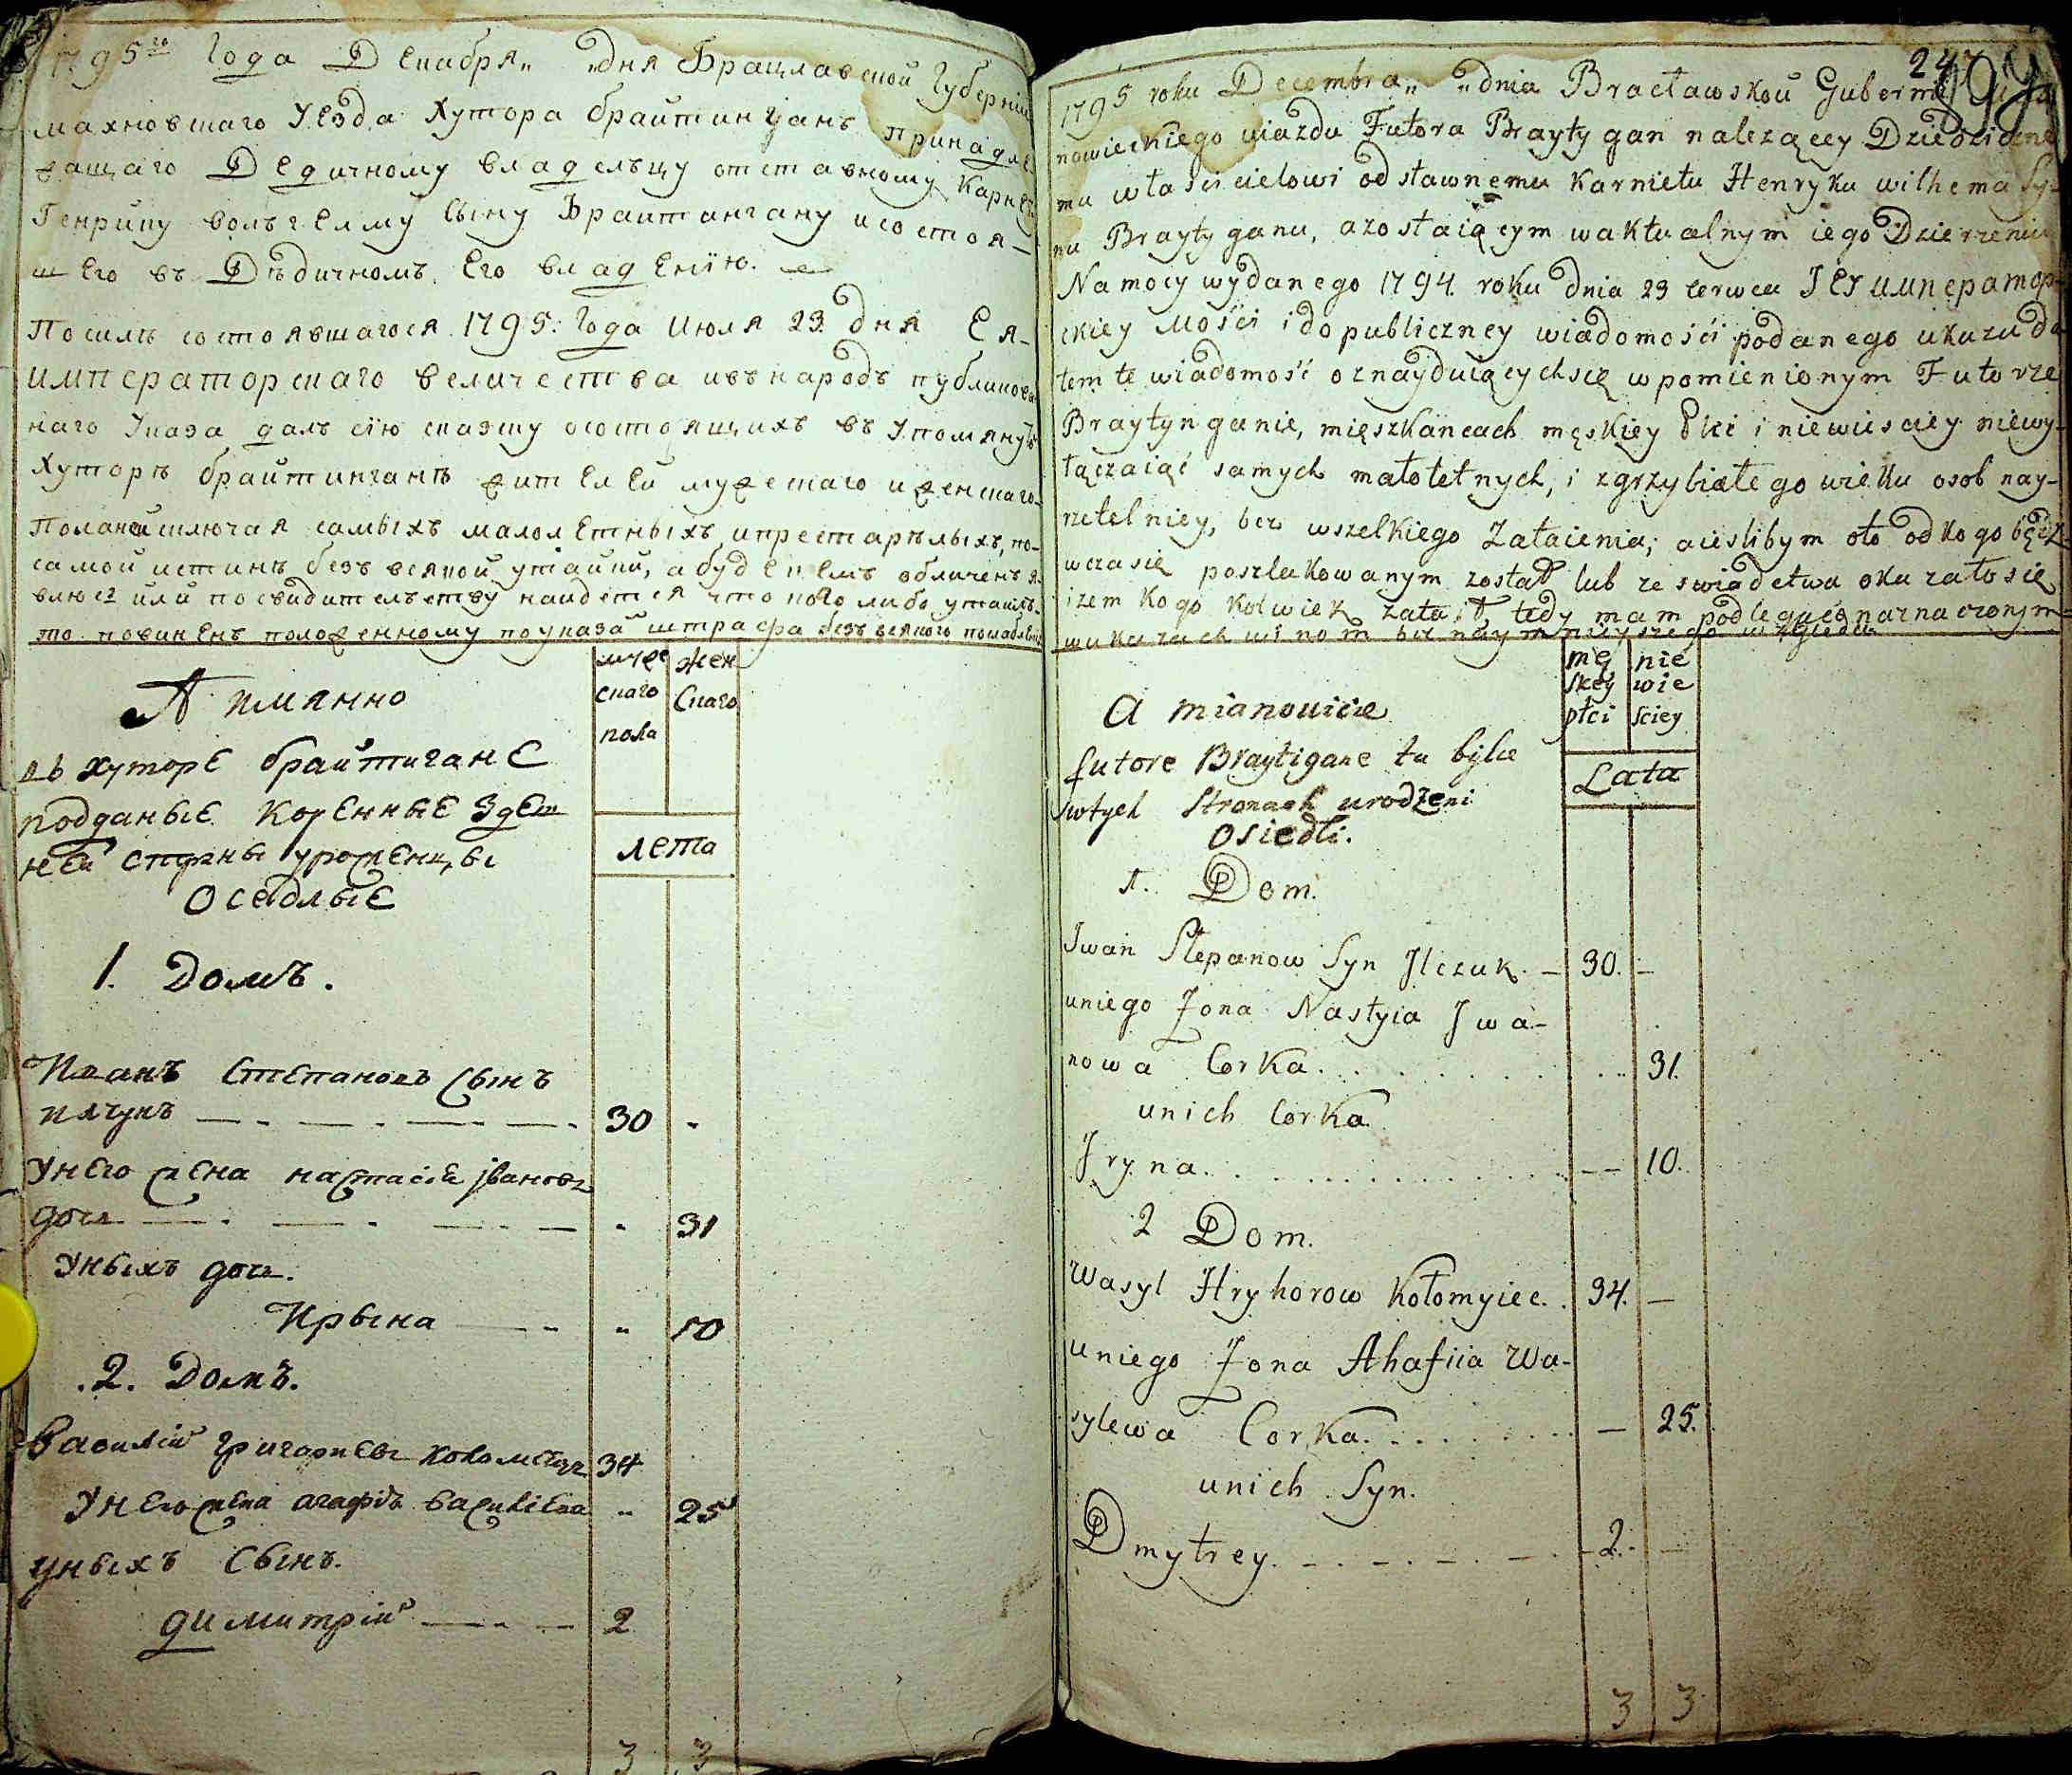 1795го Года Декабря „ „ дня Брацлавской Губерніи
махновшаго Уезда Хутора браитингань принадле
жащаго Дедичному владельцу отставному Карнет
Генрику волъгелму Сыну Браитангану исостоя-
шего въ Дѣдичномъ Его владеніїю.
Посилѣ состоявшагося 1795: Года Июля 23 дня Ея-
императорскаго величества ивъ народъ публикова
наго Указа далъ сїю сказку осостоящихъ въ Упомянут
Хуторѣ браитинганѣ жителей мужескаго иженскаго
самыхъ малолетныхъ ипрестарѣлыхъ, по-
самой истинѣ безъ всякой утайки, а буде кемъ обличенъ я-
влюсь или по свидителъству наидется что кого либо утаилъ-
то повиненъ положенному поуказа штрафа безъ всякого
А имянно
въ хуторЕ браитиганЕ
подданыЕ КоренныЕ Здеш
ней стораны уроженцы
ОседлыЕ
муже
скаго
пола
жен
Скаго
лета
1. Домъ.
Иванъ Степановъ Сынъ
илчукъ — 30 „
Унего жена настасіа іванова
дочь — „ 31
Уныхъ дочь.
Ирына — „ 10
.2. Домъ.
Василій григориевъ коломіецъ 34
Унего жена агафія василіева „ 25
уныхъ Сынъ.
димитрій — 2
3 3
247
1795 roku Decembra „ „ dnia Bracławskou Gubernii
nowieckiego uiazdu Futora Braytygan nalezącey Dziedziczne
mu właścicielowi odstawnemu Karnietu Henryku wilhema Sy-
nu Braytyganu, azostaiącym waktualnym iego Dzierzeniu
Na mocy wydanego 1794. roku dnia 23 Cerwca JEY император-
skiey Mości i do publiczney wiadomości podanego ukazu da
tem te wiadomość oznayduiącychsię wpomienionym Futorze
Braytynganie, mięszkańcach męskiey Płci i niewiesciey niewy-
łączaiąć samych małoletnych, i zgrzybiałego wieku osob nay-
rzetelniey, bez wszelkiego Zataienia; aieslibym oto od kogo będź
wczasię poszlakowanym został lub ze swiadetwa okazałosię
izem kogo kolwiek zataił, tedy mam podlegać naznaczonym-
wukazach winom bez naymnieyszego względu
A mianowicie
futore Braytigane tu bylce
swtych Stronach urodzeni
Osiedli.
mę
skey
płci
nie
wie
sciey
Lata
1. Dom.
Iwan Stepanow Syn Ilczuk. — 30. —
uniego Żona Nastyia Iwa-
nowa Corka. . . . . 31.
unich Corka.
Iryna. . . . . — 10.
2 Dom.
Wasyl Hryhorow Kołomyiec. . 34. —
uniego Żona Ahafiia Wa-
sylewa Corka. . . . . — 25.
unich Syn.
Dmytrey. — . — 2. —
3 3